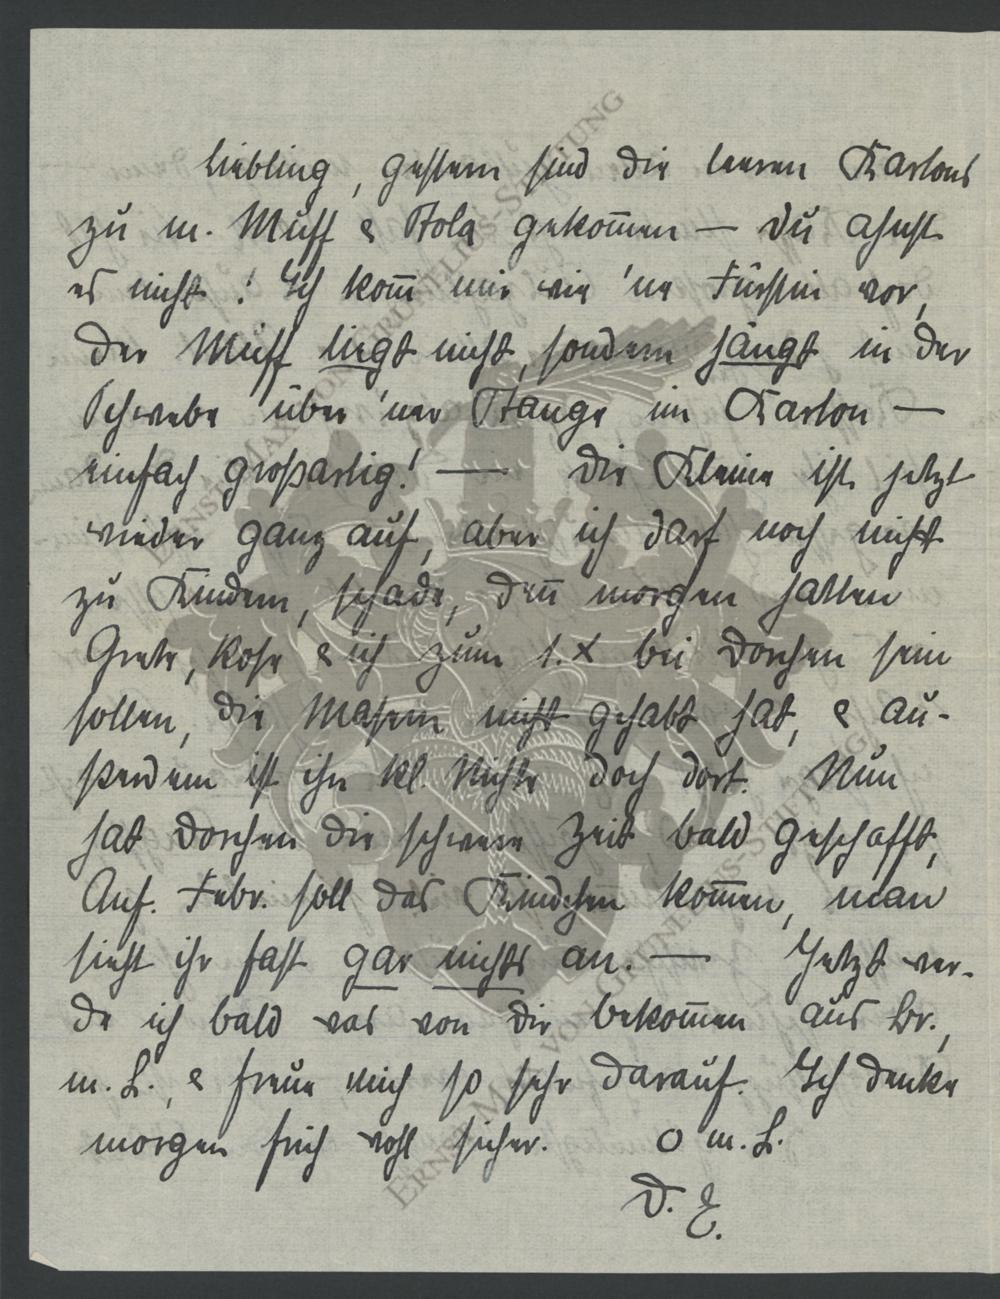 Liebling, gestern sind die leeren Kartons
zu m. Muff & Stola gekom̅en — Du ahnst
es nicht! Ich kom̅ mir wie 'ne Fürstin vor,
der Muff liegt nicht, sondern hängt in der
Schwebe über 'ner Stange im Karton —
einfach großartig! — Die Kleine ist jetzt
wieder ganz auf, aber ich darf noch nicht
zu Kindern, schade, den̅ morgen hatten
Grete, Rose & ich zum 1. x bei Dorchen sein
sollen, die Masern nicht gehabt hat, & au-
sserdem ist ihr kl. Nichte doch dort. Nun
hat Dorchen die schwere Zeit bald geschafft,
Anf. Febr. soll das Kindchen kom̅en, man
sieht ihr fast gar nichts an. — Jetzt wer-
de ich bald was von Dir bekom̅en aus Br.,
m. L., & freue mich so sehr darauf. Ich denke
morgen früh wohl sicher. O m. L.
D. E.
ERNST MAX VON GRUNELIUS-STIFTUNG
ERNST MAX VON GRUNELIUS-STIFTUNG